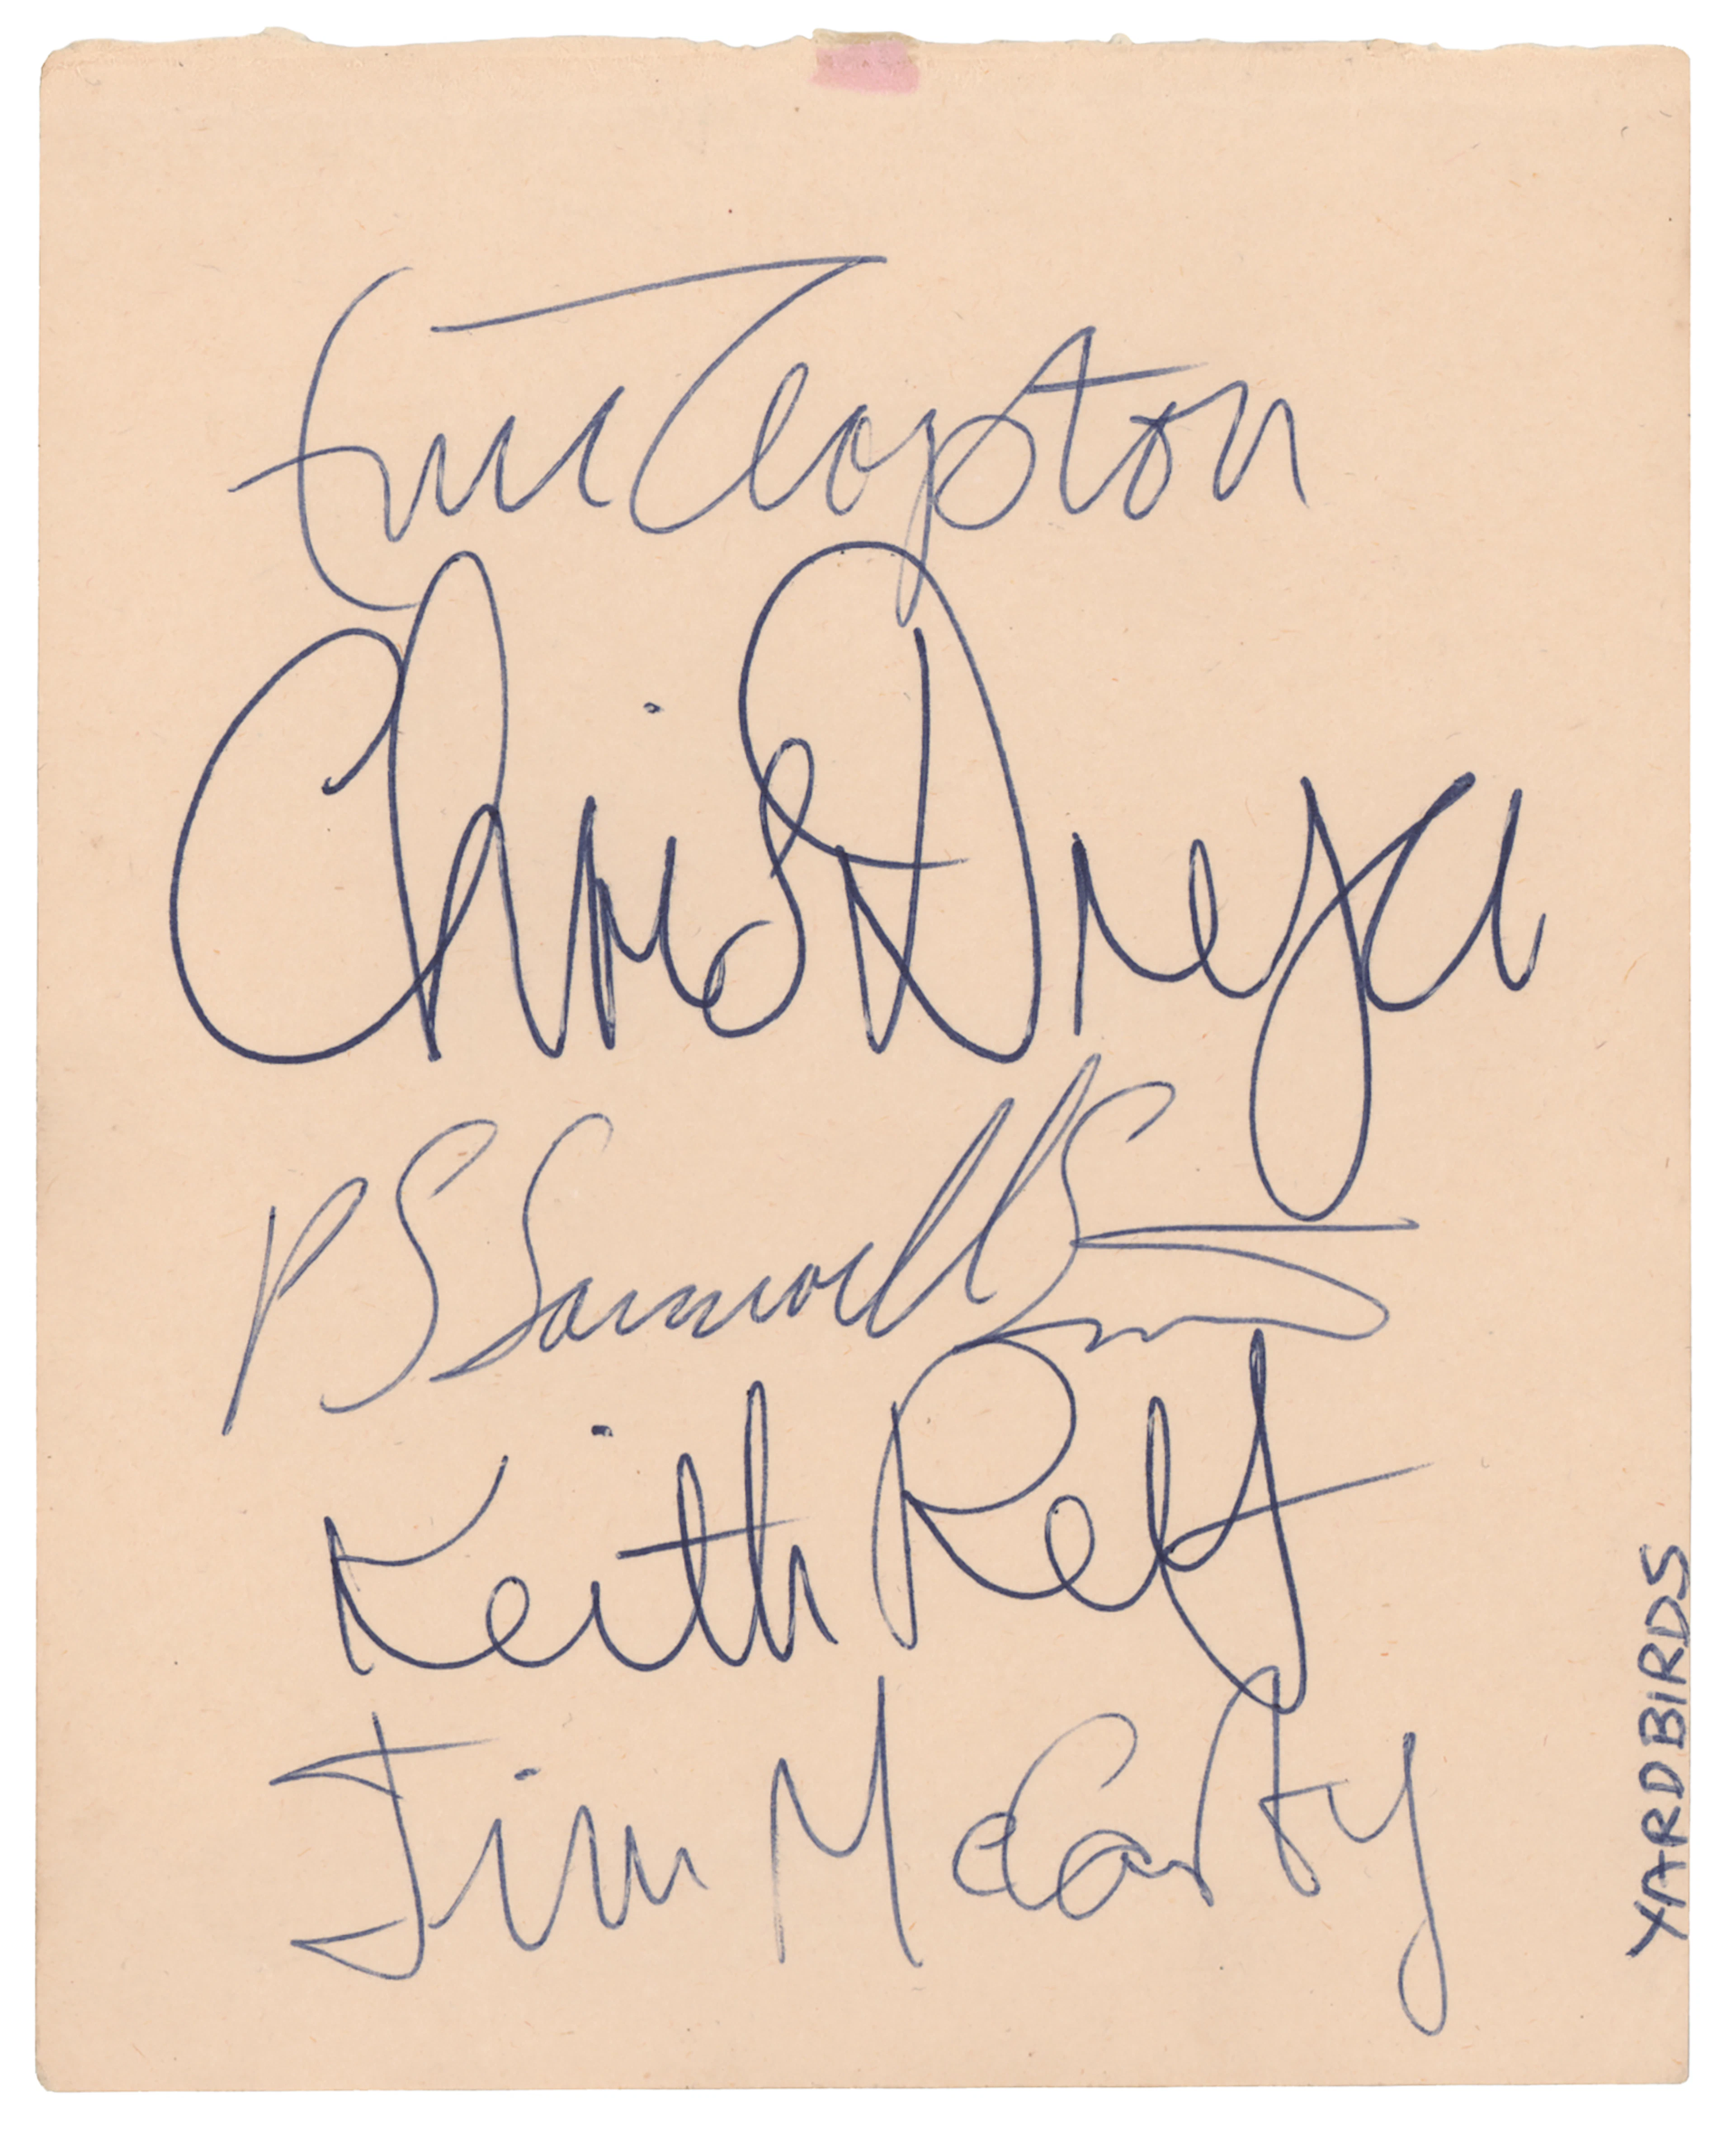 Eric Clapton
Chris Dreja
P S Samwell S
Keith Relf
Jim McCarty
YARDBIRDS